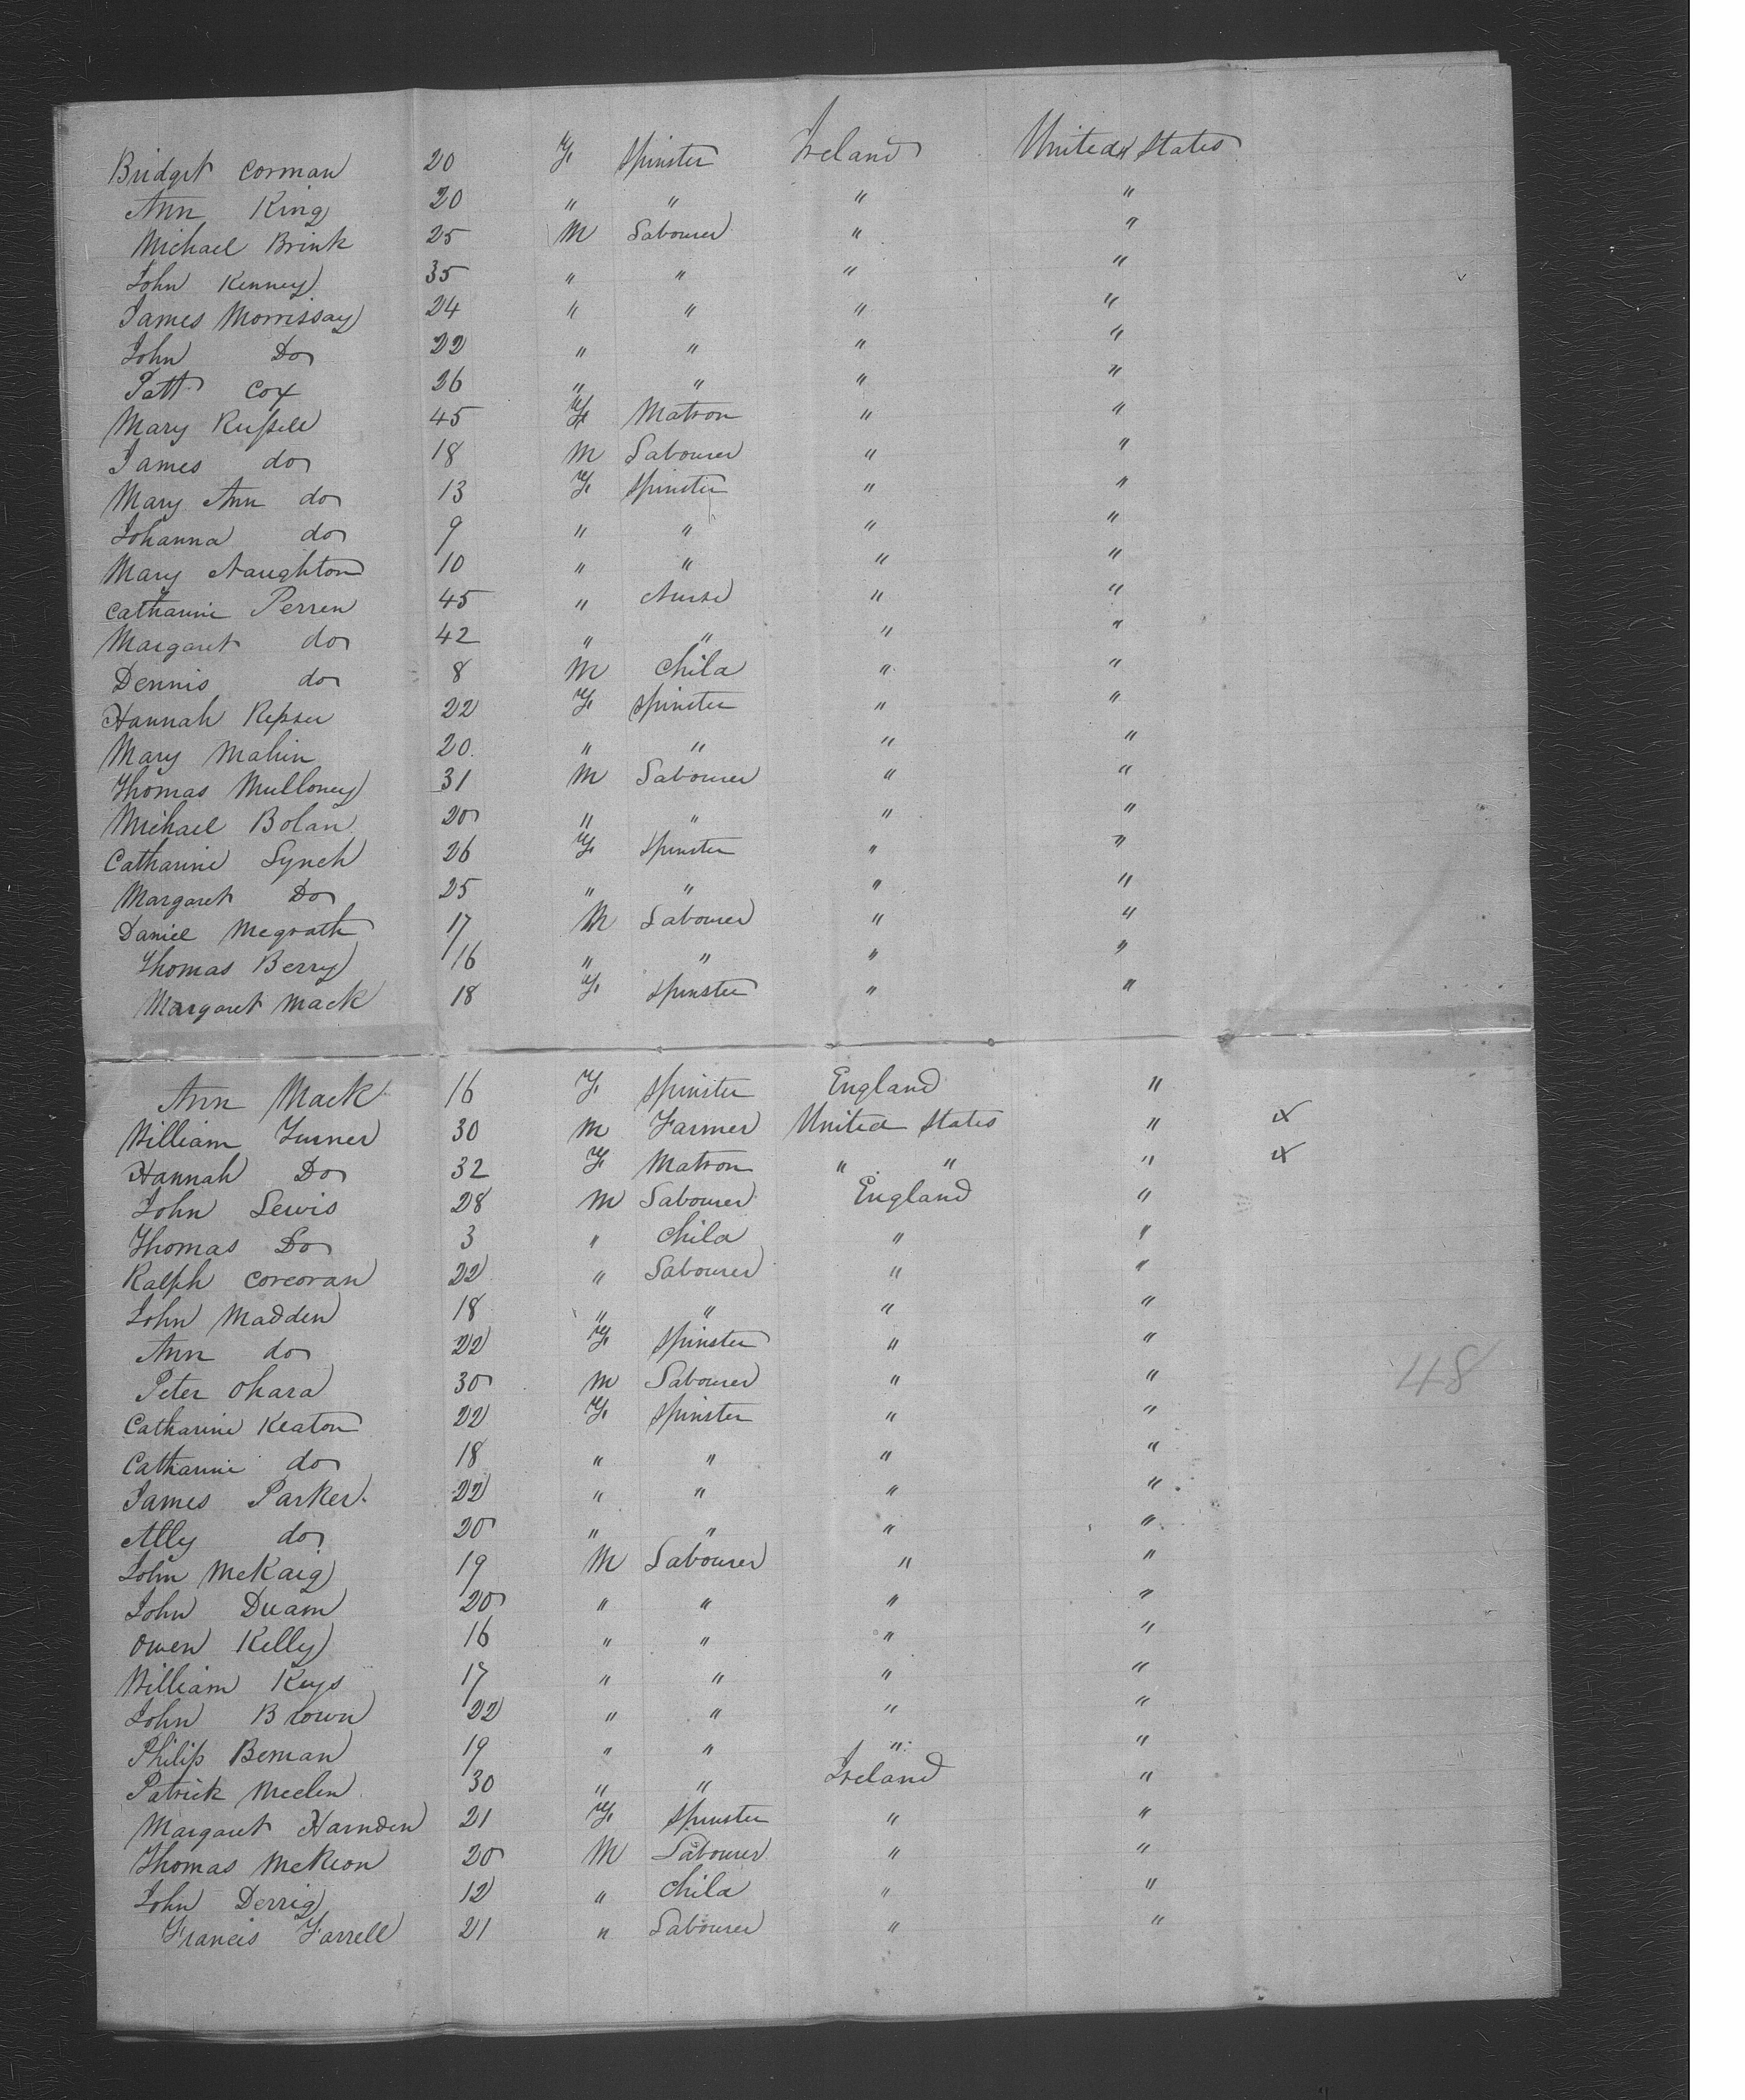 Bridget Corman 20 F Spinster Ireland United States
Ann King 20 " " " "
Michael Brink 25 M Labourer " "
John Kenney 35 " " " "
James Morrissay 24 " " " "
John Do 22 " " " "
Patt Cox 26 " " " "
Mary Russell 45 F Matron " "
James do 18 M Labourer " "
Mary Ann do 13 F Spinster " "
Johanna do 9 " " " "
Mary Naughton 10 " " " "
Catharine Perren 45 " Nurse " "
Margaret do 42 " " " "
Dennis do 8 M Child " "
Hannah 22 F Spinster " "
Mary Mahin 20 " " " "
Thomas Mulloney 31 M Labourer " "
Michael Bolan 20 " " " "
Catharine Lynch 26 F Spinster " "
Margaret Do 25 " " " "
Daniel Megrath 17 M Labourer " "
Thomas Berry 16 " " " "
Margaret Mack 18 F Spinster " "
Ann Mack 16 F Spinster England "
William Turner 30 M Farmer United States " x
Hannah Do 32 F Matron " " " x
John Lewis 28 M Labourer England "
Thomas Do 3 " Child " "
Ralph Corcoran 22 " Labourer " "
John Madden 18 " " " "
Ann do 22 F Spinster " "
Peter Ohara 30 M Labourer " " 48
Catharine Keaton 22 F Spinster " "
Catharine do 18 " " " "
James Parker 22 " " " "
Ally do 20 " " " "
John McKaig 19 M Labourer " "
John Duam 20 " " " "
Owen Kelly 16 " " " "
William Keys 17 " " " "
John Brown 22 " " " "
Philip Beman 19 " " " "
Patrick Meelen 30 " " Ireland "
Margaret Harnden 21 F Spinster " "
Thomas McKeon 20 M Labourer " "
John Derrig 12 " Child " "
Francis Farrell 21 " Labourer " "